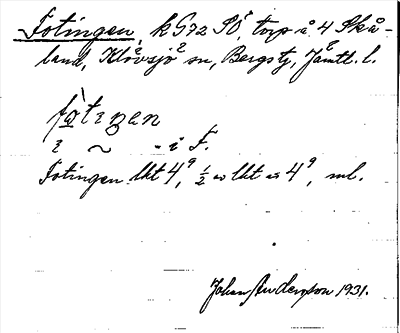 Fotingen, k G72 SÖ, torp å 4 Skå-
land, Klövsjö sn, Bergstj, Jämtl. l.
fo̖tıŋen
i ~ - i F.
Fotingen lkt 4⁹, ½ lkt 4⁹, ml.
Johan Anderson 1931.